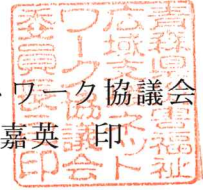 トワーク協議会
嘉英 印
青森県災害福祉
広域支援ネット
ワーク協議会
委員長之印